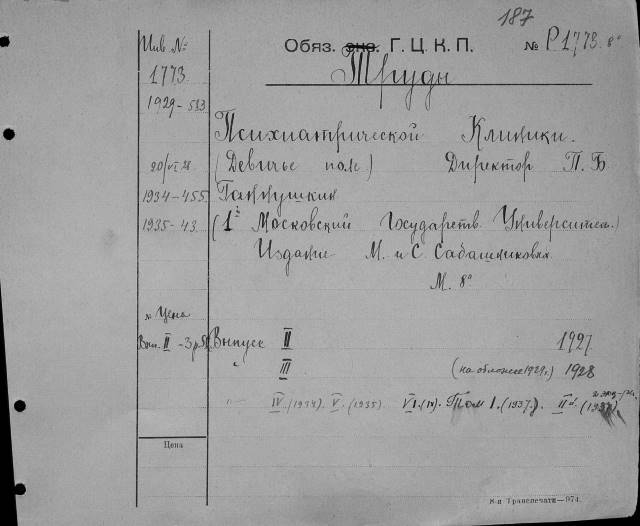 187
Обяз. экз. Г. Ц. К. П.
№ Р1773. 8°
Инв. №
1773
1929-513
Труды
Психиатрической Клиники.
20/VI 28 (Девичье поле) Директор П. Б
1934-455 Ганнушкин
1935-43. (1й Московский Государств. Университет.)
Издание М. и С. Сабашниковых
М. 8°
№ Цена
Вып. II -3р Выпуск II 1927
" III (на обложке 1929.) 1928
" IV. (1934). V. (1935) VI. (IV). Том I. (1937.). II
Цена
8-я Транспечати—974.